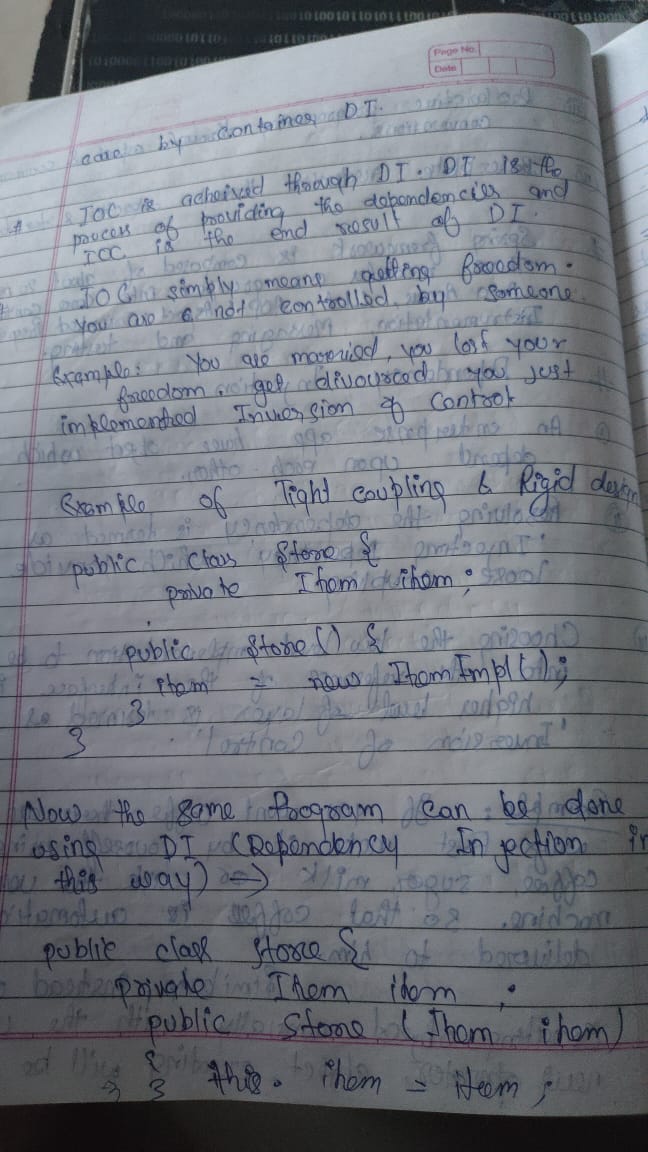 Page No.
Date
by Container DI.
IOC is acheived through DI. DI is the
process of providing the dependencies and
IOC is the end result of DI.
IOC simbly means getting freedom.
You are not controlled by someone
Example: You are married, you lost your
freedom, get divourced you just
implemented Inversion of Control
Example of Tight coupling & Rigid design
public class Store {
private Item item ;
public Store() {
item = new ItemImpl();
}
}
Now the same Program can be done
using DI (Dependency Injection in
this way) =>
public class Store {
private Item item ;
public Store (Item item)
{
} } this. item = item ;